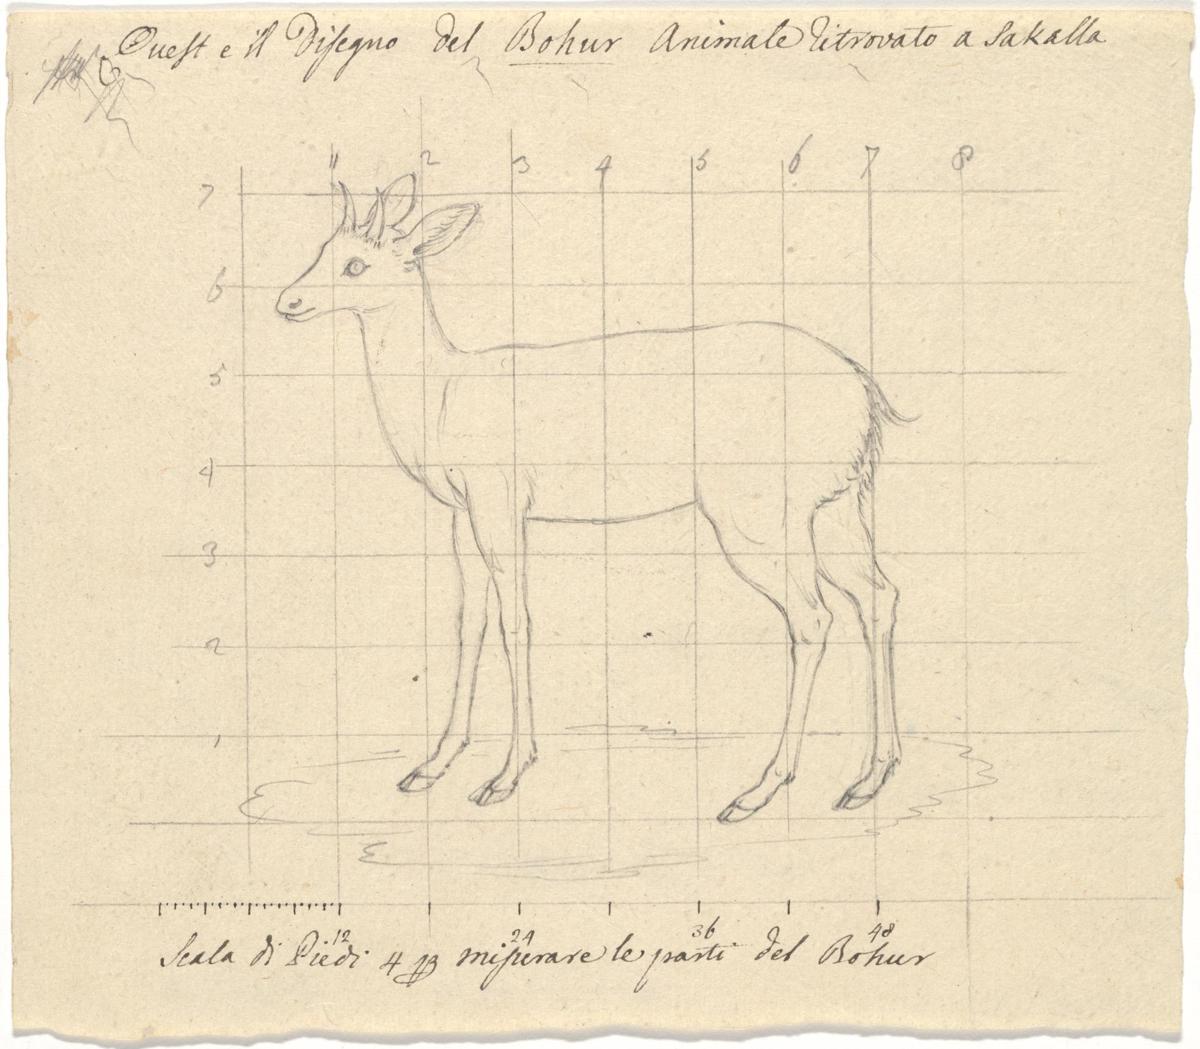 Quest e il Disegno del Bohur Animale ritrovato a Sakalla
1 2 3 4 5 6 7 8
7
6
5
4
3
2
1
12 24 36 48
Scala di Piedi 4 p misurare le parti del Bohur